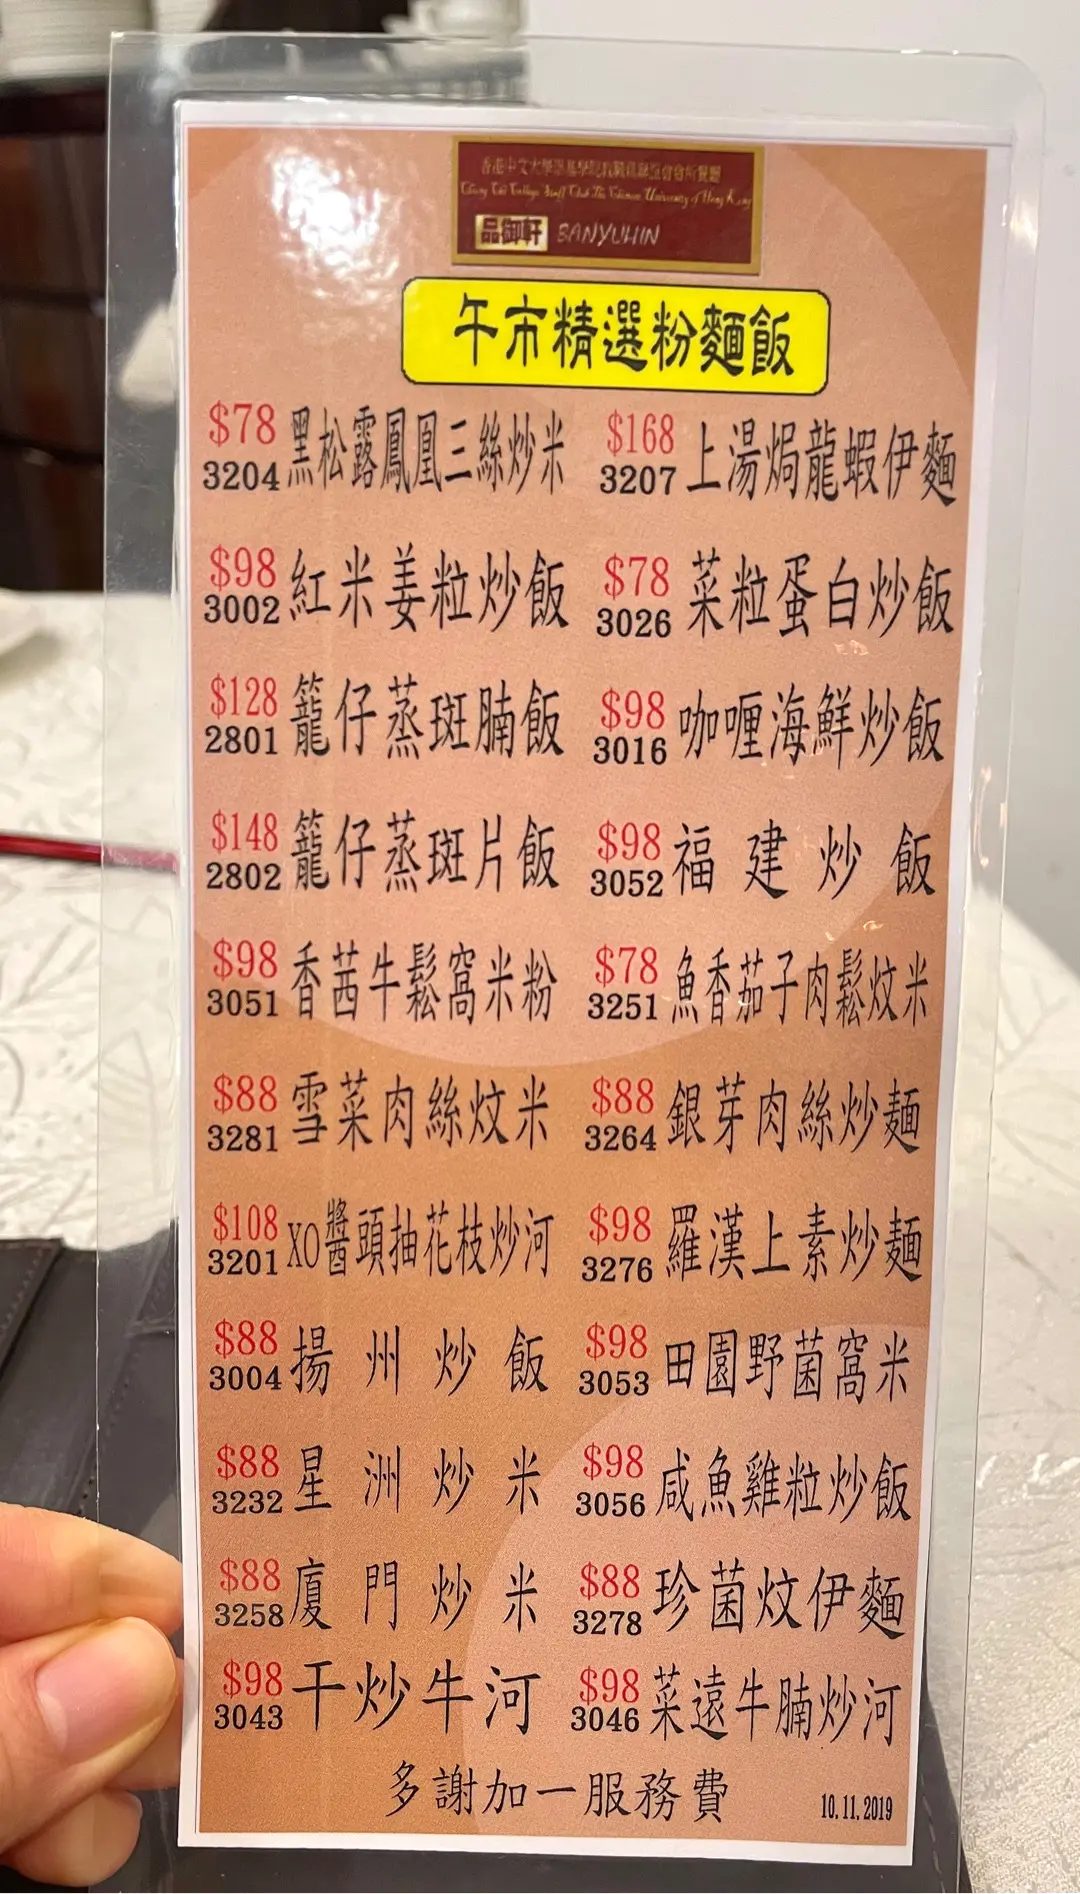 香港中文大學崇基學院教職員聯誼會會所餐廳
Chung Chi College Staff Club The Chinese University of Hong Kong
品御軒 BANYUHIN
午市精選粉麵飯
$78 3204 黑松露鳳凰三絲炒米
$168 3207 上湯焗龍蝦伊麵
$98 3002 紅米姜粒炒飯
$78 3026 菜粒蛋白炒飯
$128 2801 籠仔蒸斑腩飯
$98 3016 咖喱海鮮炒飯
$148 2802 籠仔蒸斑片飯
$98 3052 福建炒飯
$98 3051 香茜牛鬆窩米粉
$78 3251 魚香茄子肉鬆炆米
$88 3281 雪菜肉絲炆米
$88 3264 銀芽肉絲炒麵
$108 3201 XO醬頭抽花枝炒河
$98 3276 羅漢上素炒麵
$88 3004 揚州炒飯
$98 3053 田園野菌窩米
$88 3232 星洲炒米
$98 3056 咸魚雞粒炒飯
$88 3258 廈門炒米
$88 3278 珍菌炆伊麵
$98 3043 干炒牛河
$98 3046 菜遠牛腩炒河
多謝加一服務費
10.11.2019